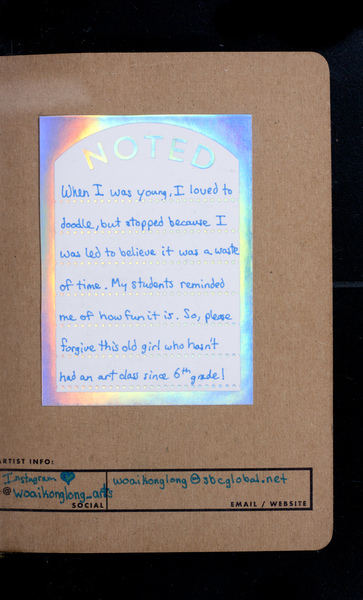 NOTED
When I was young, I loved to
doodle, but stopped because I
was led to believe it was a waste
of time. My students reminded
me of how fun it is. So, please
forgive this old girl who hasn't
had an art class since 6th grade!
ARTIST INFO:
Instagram
@woaikonglong_arts
SOCIAL
woaikonglong@sbcglobal.net
EMAIL / WEBSITE